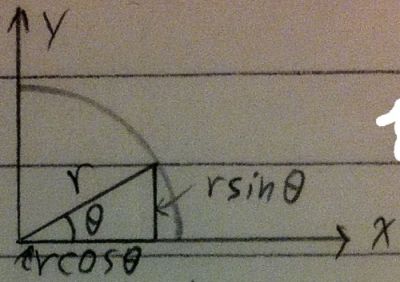 Y
r
θ
r sin θ
X
r cos θ